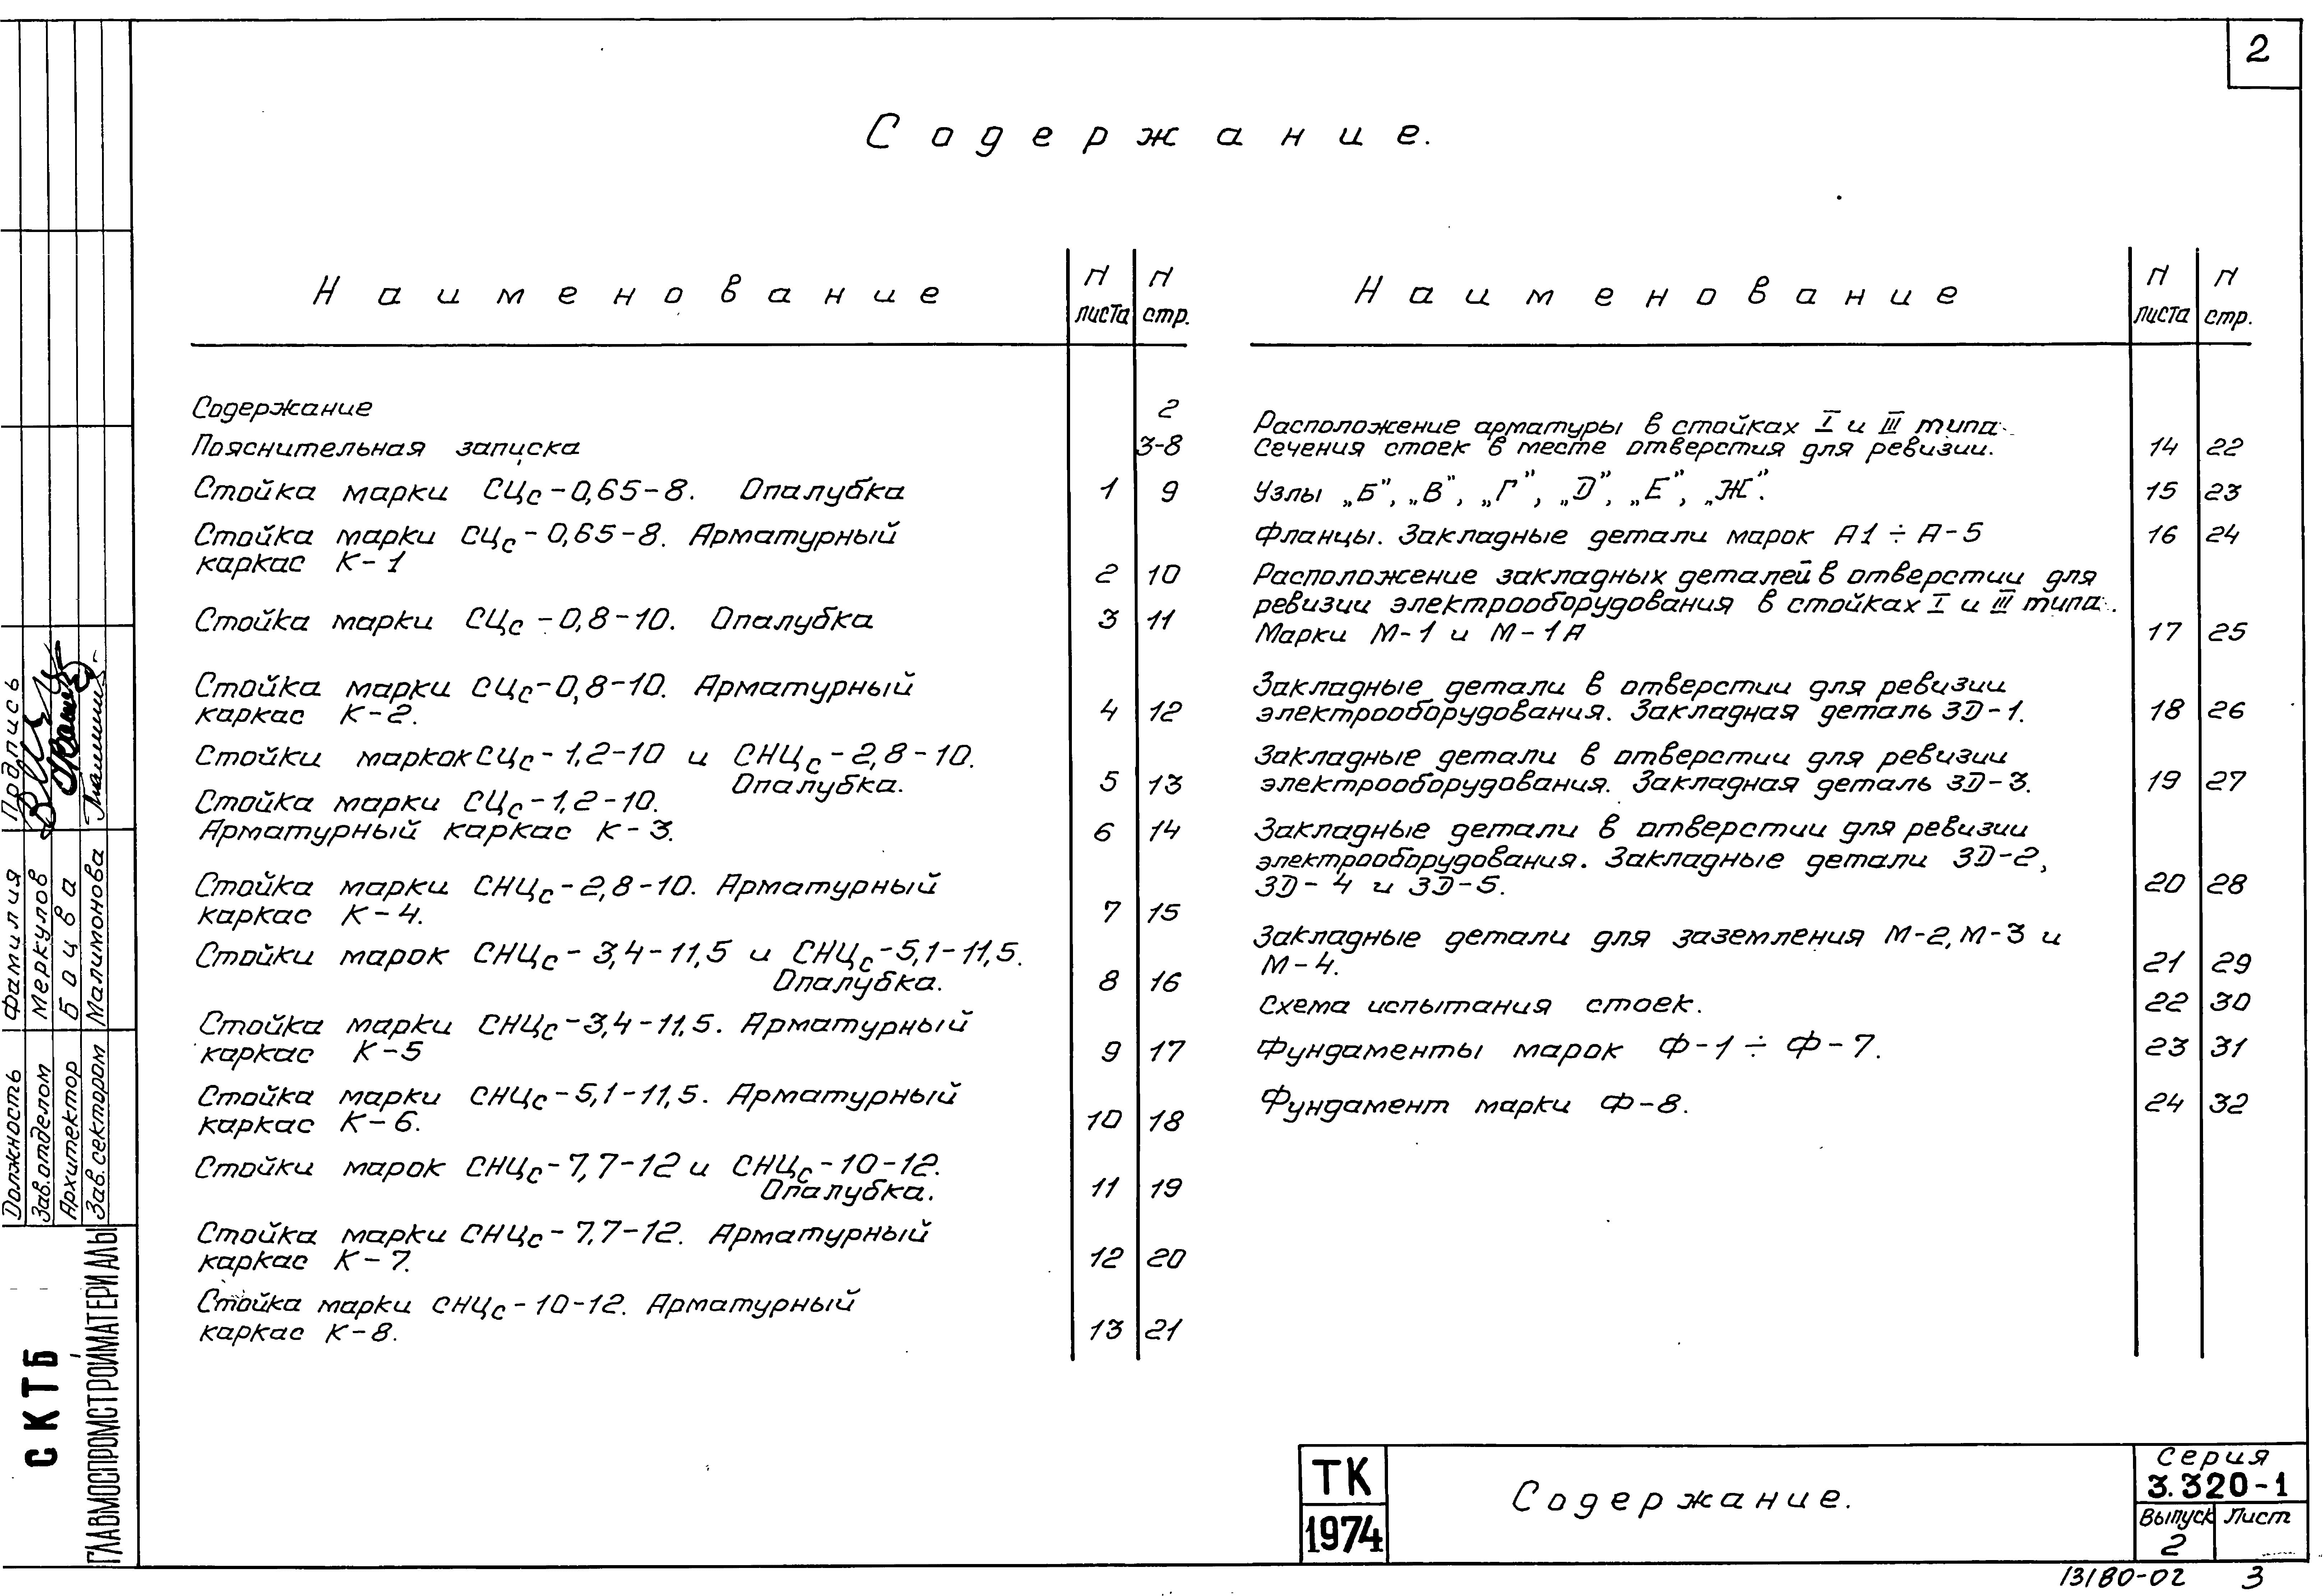 2
Содержание.
Наименование
N листа
N стр.
Содержание 2
Пояснительная записка 3-8
Стойка марки СЦс-0,65-8. Опалубка 1 9
Стойка марки СЦс-0,65-8. Арматурный
каркас К-1 2 10
Стойка марки СЦс-0,8-10. Опалубка 3 11
Стойка марки СЦс-0,8-10. Арматурный
каркас К-2. 4 12
Стойки маркок СЦс-1,2-10 и СНЦс-2,8-10.
Опалубка. 5 13
Стойка марки СЦс-1,2-10.
Арматурный каркас К-3. 6 14
Стойка марки СНЦс-2,8-10. Арматурный
каркас К-4. 7 15
Стойки марок СНЦс-3,4-11,5 и СНЦс-5,1-11,5.
Опалубка. 8 16
Стойка марки СНЦс-3,4-11,5. Арматурный
каркас К-5 9 17
Стойка марки СНЦс-5,1-11,5. Арматурный
каркас К-6. 10 18
Стойки марок СНЦс-7,7-12 и СНЦс-10-12.
Опалубка. 11 19
Стойка марки СНЦс-7,7-12. Арматурный
каркас К-7. 12 20
Стойка марки СНЦс-10-12. Арматурный
каркас К-8. 13 21
Наименование
N листа
N стр.
Расположение арматуры в стойках I и III типа.
Сечения стоек в месте отверстия для ревизии. 14 22
Узлы „Б”, „В”, „Г”, „D”, „Е”, „Ж”. 15 23
Фланцы. Закладные детали марок А1÷А-5 16 24
Расположение закладных деталей в отверстии для
ревизии электрооборудования в стойках I и III типа.
Марки М-1 и М-1А 17 25
Закладные детали в отверстии для ревизии
электрооборудования. Закладная деталь ЗD-1. 18 26
Закладные детали в отверстии для ревизии
электрооборудования. Закладная деталь ЗD-3. 19 27
Закладные детали в отверстии для ревизии
электрооборудования. Закладные детали ЗD-2,
ЗD-4 и ЗD-5. 20 28
Закладные детали для заземления М-2, М-3 и
М-4. 21 29
Схема испытания стоек. 22 30
Фундаменты марок Ф-1÷Ф-7. 23 31
Фундамент марки Ф-8. 24 32
Должность Фамилия Подпись
Зав.отделом Меркулов
Архитектор Боцва
Зав.сектором Малимонова
СКТБ
ГЛАВМОСПРОМСТРОЙМАТЕРИАЛЫ
ТК
1974
Содержание.
Серия
3.320-1
Выпуск Лист
2
13180-02 3